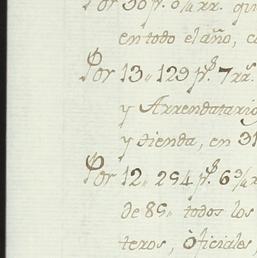 Por 30 p.s 6¼ rr. qu
en todo el año, c
Por 13,, 129 p.s 7 rr.s
y Arrendatario
y tienda, en 31
Por 12,, 294 p.s 6¾ r
de 89,, todos los
teros, Oficiales,